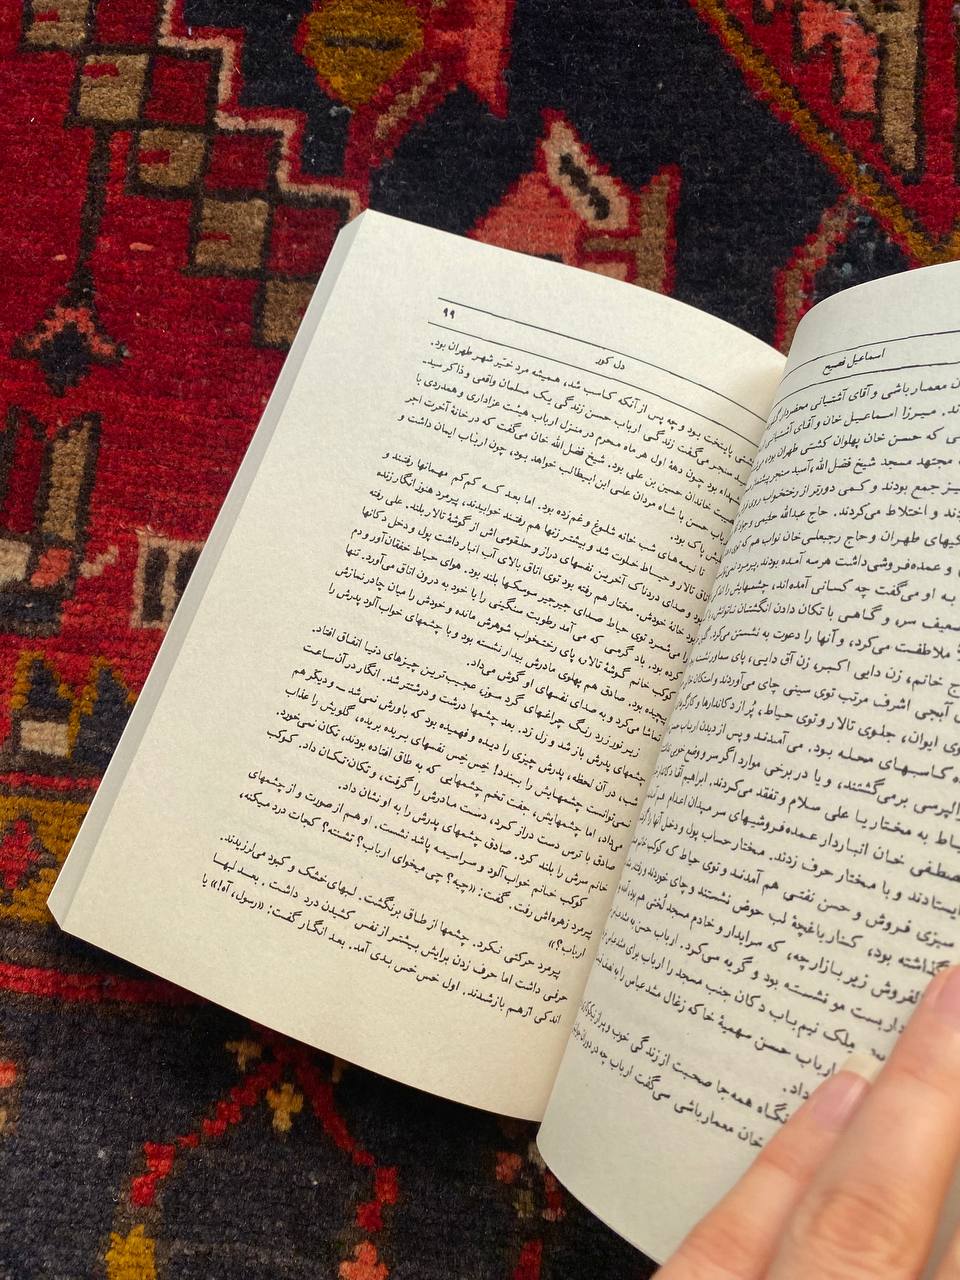 اسماعیل فصیح
معمارباشی و آقای آشتیانی محضردار
میرزا اسماعیل خان و آقای آشتیانی
که حسن خان پهلوان کشتی طهران بود
مجتهد مسجد شیخ فضل‌الله، آسید منجر
جمع بودند و کمی دورتر از رختخواب روی
و اختلاط می‌کردند. حاج عبدالله حلیمی و
طهران و حاج رجبعلی خان نواب هم که
و عمده‌فروشی داشت همه آمده بودند. پیرمرد
به او می‌گفت چه کسانی آمده‌اند، چشمهایش را
سر، و گاهی با تکان دادن انگشتان
ملاطفت می‌کرد، و آنها را دعوت به نشستن می‌کرد.
خانم، زن دایی اکبر، زن آق دایی، پای سماور
آبجی اشرف مرتب توی سینی چای می‌آوردند و استکان
ایوان، جلوی تالار و توی حیاط، پر از دکاندارها و
کاسبهای محله بود. می‌آمدند و پس از دیدن ارباب
برمی‌گشتند، و یا در برخی موارد اگر سر و وضع خوبی
به مختار یا علی سلام و تفقد می‌کردند. ابراهیم آقا
خان انباردار عمده‌فروشیهای سر میدان اعدام
ایستادند و با مختار حرف زدند. مختار حساب پول و دخل آنها را
سبزی فروش و حسن نفتی هم آمدند و توی حیاط که کوکب
گذاشته بود، کنار باغچهٔ لب حوض نشستند و چای خوردند و رفتند.
زیر بازارچه، که سرایدار و خادم مسجد لختی هم بود،
داربست مو نشسته بود و گریه می‌کرد. ارباب حسن
ملک نیم‌باب دکان جنب مسجد را ارباب برای
ارباب حسن سهمیهٔ خاکه زغال مشدعباس را
داد.
همه جا صحبت از زندگی خوب و پر از نیکوکاری
خان معمارباشی می‌گفت ارباب چه در دوران
۹۹
دل کور
پایتخت بود و چه پس از آنکه کاسب شد، همیشه مرد خیر شهر طهران بود.
منجر می‌گفت زندگی ارباب حسن زندگی یک مسلمان واقعی و ذاکر سید-
الشهداء بود چون دههٔ اول هر ماه محرم در منزل ارباب هیئت عزاداری و همدردی با
خاندان حسین بن علی بود. شیخ فضل‌الله خان می‌گفت که در خانهٔ آخرت اجر
ارباب حسن با شاه مردان علی ابن ابیطالب خواهد بود، چون ارباب ایمان داشت و
پاک بود.
تا نیمه‌های شب خانه شلوغ و غم‌زده بود. اما بعد کم کم مهمانها رفتند و
اتاق تالار و حیاط خلوت شد و بیشتر زنها هم رفتند خوابیدند، پیرمرد هنوز انگار زنده
بود و صدای دردناک آخرین نفسهای دراز و حلقومی‌اش از گوشهٔ تالار بلند. علی رفته
بود خانهٔ خودش. مختار هم رفته بود توی اتاق بالای آب انبار داشت پول و دخل دکانها
را می‌شمرد توی حیاط صدای جیرجیر سوسکها بلند بود. هوای حیاط خفقان‌آور و دم
کرده بود. باد گرمی که می‌آمد رطوبت سنگینی را با خود به درون اتاق می‌آورد. تنها
کوکب خانم گوشهٔ تالار، پای رختخواب شوهرش مانده و خودش را میان چادر نمازش
پیچیده بود. صادق هم پهلوی مادرش بیدار نشسته بود و با چشمهای خواب‌آلود پدرش را
تماشا می‌کرد و به صدای نفسهای او گوش می‌داد.
زیر نور زرد رنگ چراغهای گرد سوز، عجیب‌ترین چیزهای دنیا اتفاق افتاد.
چشمهای پدرش باز شد و زل زد. بعد چشمها درشت و درشتر شد. انگار در آن ساعت
شب، در آن لحظه، پدرش چیزی را دیده و فهمیده بود که باورش نمی‌شد ــ و دیگر هم
نمی‌توانست چشمهایش را ببندد! خس خس نفسهای بریده بریده، گلویش را عذاب
می‌داد، اما چشمهایش، جفت تخم چشمهایی که به طاق افتاده بودند، تکان نمی‌خورد.
صادق با ترس دست دراز کرد، دست مادرش را گرفت، و تکان‌تکان داد. کوکب
خانم سرش را بلند کرد. صادق چشمهای پدرش را به او نشان داد.
کوکب خانم خواب‌آلود و سراسیمه پاشد نشست. او هم از صورت و از چشمهای
پیرمرد زهره‌اش رفت. گفت: «چیه؟ چی میخوای ارباب؟ تشنته؟ کجات درد میکنه،
ارباب؟»
پیرمرد حرکتی نکرد. چشمها از طاق برنگشت. لبهای خشک و کبود می‌لرزیدند.
حرفی داشت اما حرف زدن برایش بیشتر از نفس کشیدن درد داشت. بعد لبها
اندکی از هم باز شدند. اول خس خس بدی آمد. بعد انگار گفت: «رسول، آه!» یا